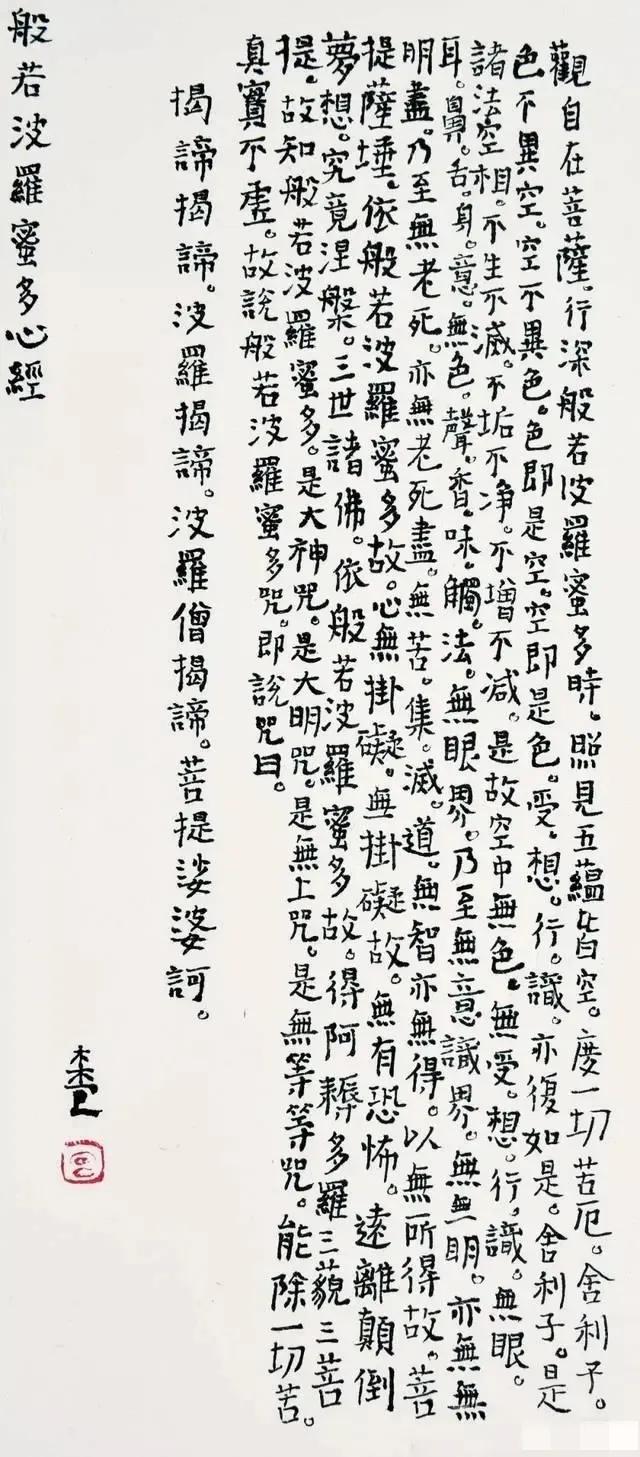 觀自在菩薩。行深般若波羅蜜多時。照見五蘊皆空。度一切苦厄。舍利子。
色不異空。空不異色。色即是空。空即是色。受。想。行。識。亦復如是。舍利子。是
諸法空相。不生不滅。不垢不净。不增不减。是故空中無色。無受。想。行。識。無眼。
耳。鼻。舌。身。意。無色。聲。香。味。觸。法。無眼界。乃至無意識界。無無明。亦無無
明盡。乃至無老死。亦無老死盡。無苦。集。滅。道。無智亦無得。以無所得故。菩
提薩埵。依般若波羅蜜多故。心無掛礙。無掛礙故。無有恐怖。遠離顛倒
夢想。究竟涅槃。三世諸佛。依般若波羅蜜多故。得阿耨多羅三藐三菩
提。故知般若波羅蜜多。是大神咒。是大明咒。是無上咒。是無等等咒。能除一切苦。
真實不虛。故說般若波羅蜜多咒。即說咒曰。
揭諦揭諦。波羅揭諦。波羅僧揭諦。菩提娑婆訶。
般若波羅蜜多心經